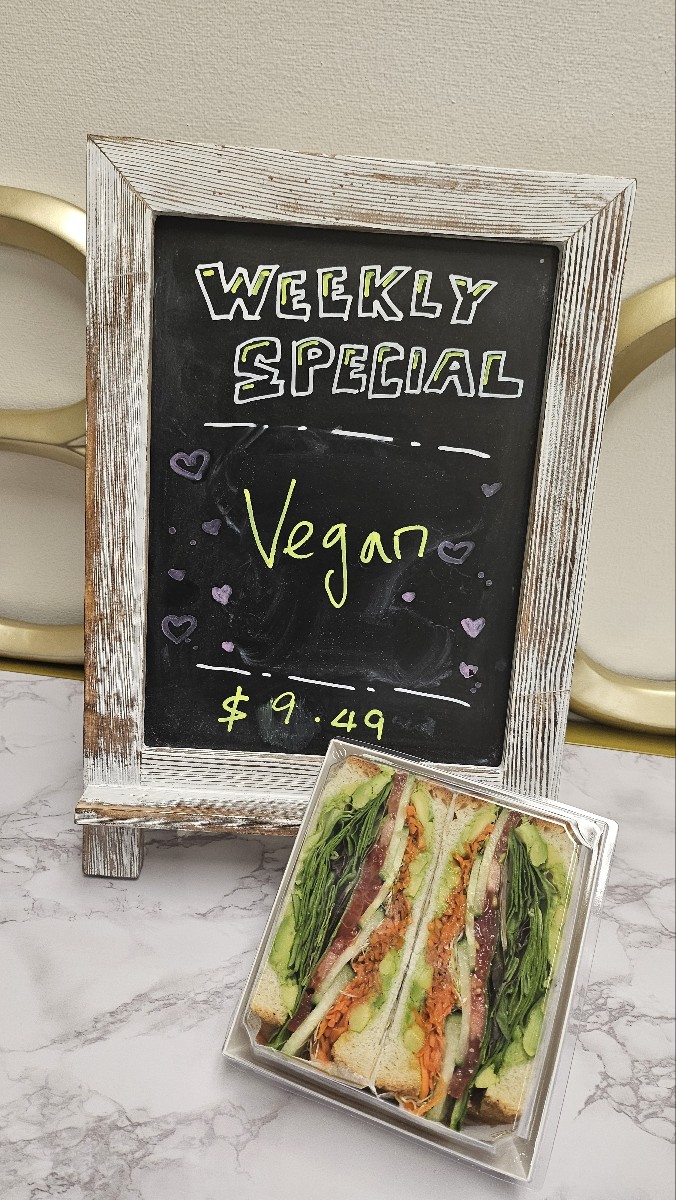 WEEKLY
SPECIAL
Vegan
$ 9.49